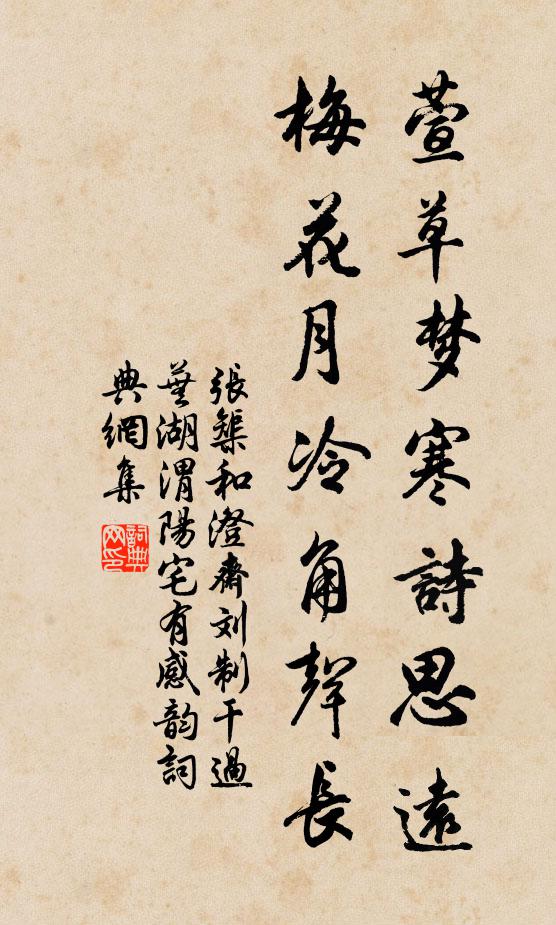 萱草梦寒詩思遠
梅花月冷角聲長
張榘和澄齋刘制干過
蕪湖渭陽宅有感韵詞
典網集
詞典
网印